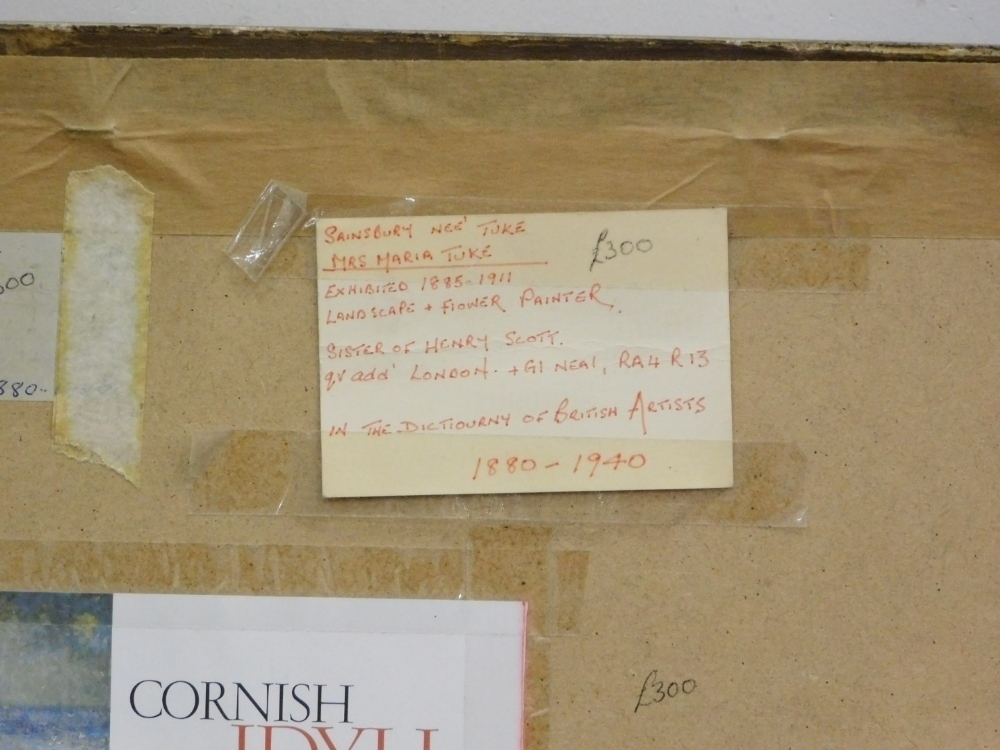 SAINSBURY NEE' TUKE
MRS MARIA TUKE
£300
EXHIBITED 1885-1911
LANDSCAPE + FLOWER PAINTER,
SISTER OF HENRY SCOTT.
qv add' LONDON. + GI NEA1, RA4 R13
IN THE DICTIOURNY OF BRITISH ARTISTS
1880-1940
00
380-
CORNISH
IDYLL
£300